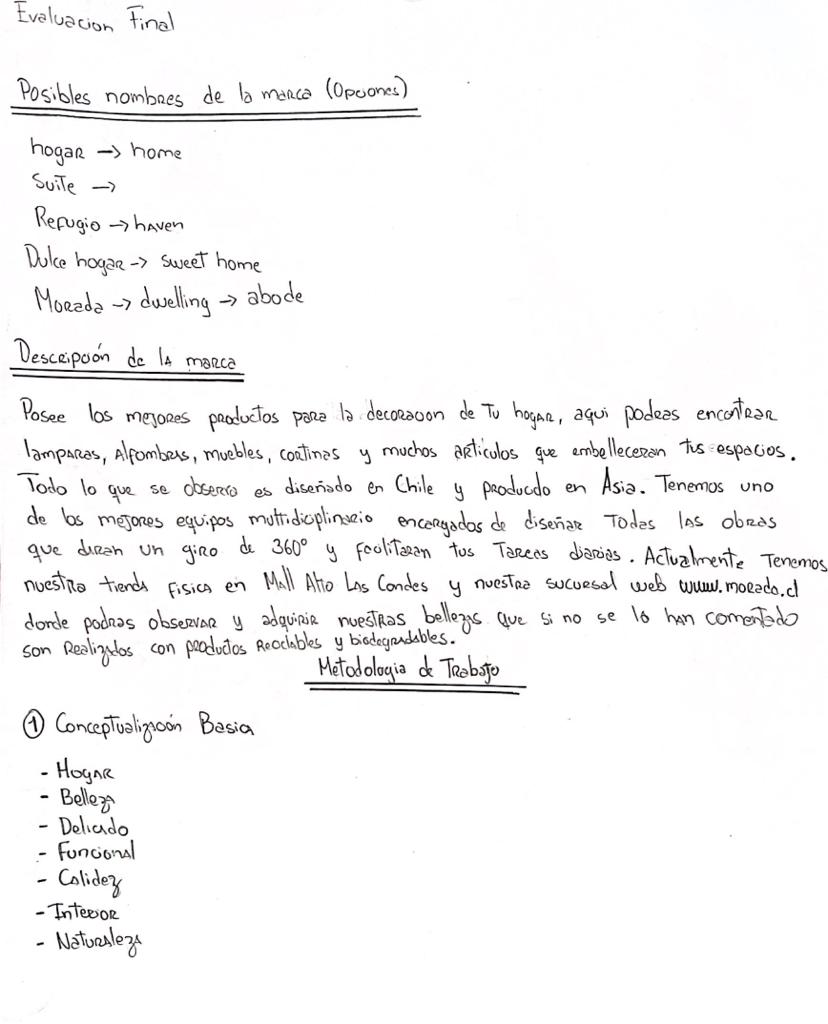 Evaluacion Final
Posibles nombres de la marca (Opciones)
hogar -> home
Suite ->
Refugio -> haven
Dulce hogar -> sweet home
Morada -> dwelling -> abode
Descripción de la marca
Posee los mejores productos para la decoracion de Tu hogar, aqui podras encontrar
lamparas, Alfombras, muebles, cortinas y muchos articulos que embelleceran tus espacios.
Todo lo que se observa es diseñado en Chile y producido en Asia. Tenemos uno
de los mejores equipos multidiciplinario encargados de diseñar Todas las obras
que daran un giro de 360° y facilitaran tus Tareas diarias. Actualmente Tenemos
nuestra tienda fisica en Mall Alto Las Condes y nuestra sucursal web www.morada.cl
donde podras observar y adquirir nuestras bellezas que si no se lo han comentado
son Realizados con productos Reciclables y biodegradables.
Metodologia de Trabajo
① Conceptualización Basica
- Hogar
- Belleza
- Delicado
- Funcional
- Calidez
- Interior
- Naturaleza